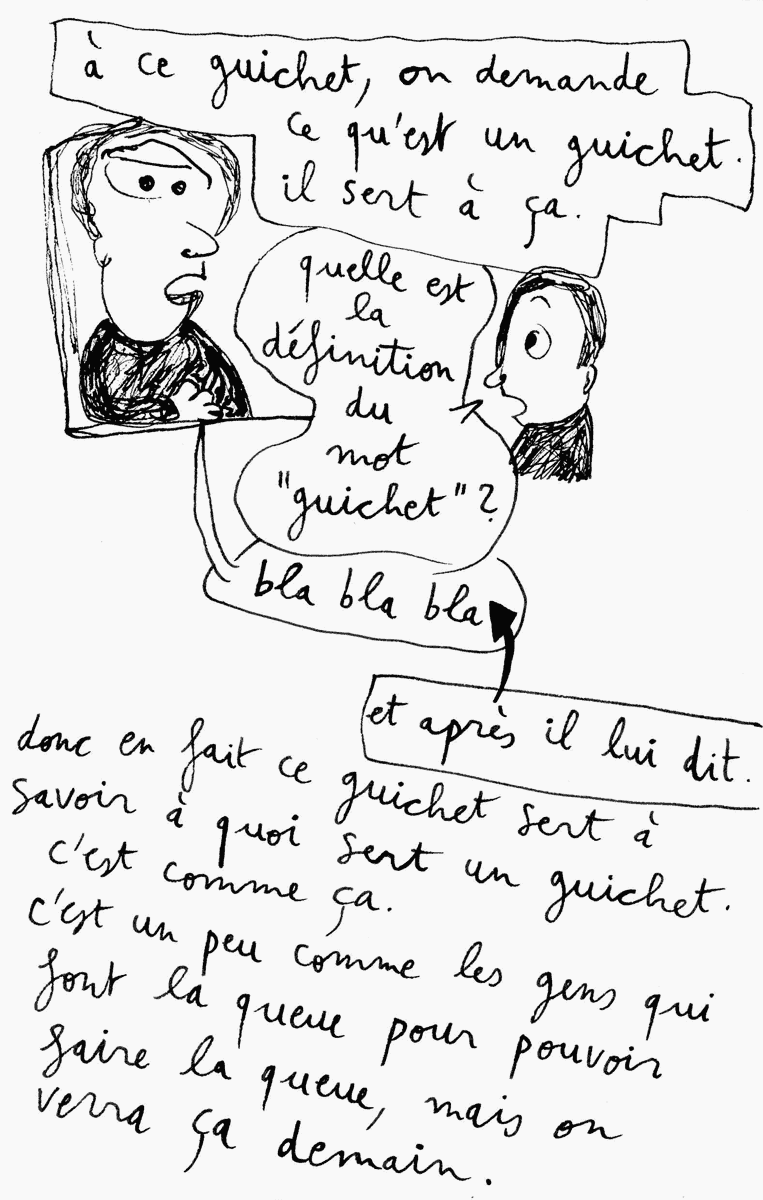 à ce guichet, on demande
ce qu'est un guichet.
il sert à ça.
quelle est
la
définition
du
mot
"guichet"?
bla bla bla
et après il lui dit.
donc en fait ce guichet sert à
savoir à quoi sert un guichet.
c'est comme ça.
c'est un peu comme les gens qui
font la queue pour pouvoir
faire la queue, mais on
verra ça demain.